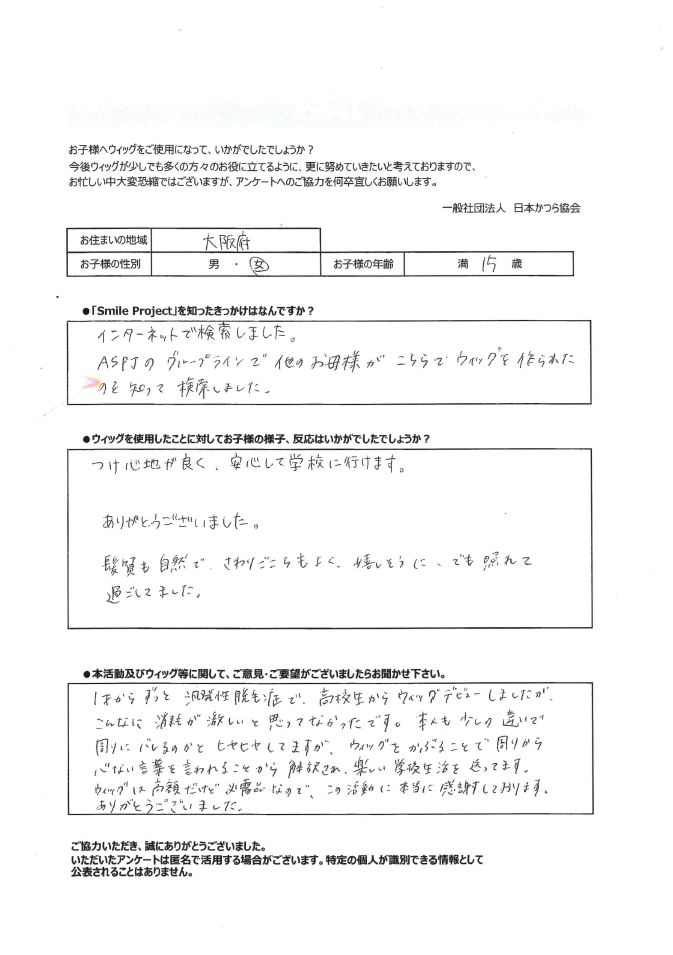 お子様へウィッグをご使用になって、いかがでしたでしょうか？
今後ウィッグが少しでも多くの方々のお役に立てるように、更に努めていきたいと考えておりますので、
お忙しい中大変恐縮ではございますが、アンケートへのご協力を何卒宜しくお願いします。
一般社団法人 日本かつら協会
お住まいの地域 大阪府
お子様の性別 男 ・ 女 お子様の年齢 満 15 歳
●「Smile Project」を知ったきっかけはなんですか？
インターネットで検索しました。
ASPJの グループラインで 他のお母様が こちらで ウィッグを 作られた
のを 知って 検索しました。
●ウィッグを使用したことに対してお子様の様子、反応はいかがでしたでしょうか？
つけ心地が良く、安心して学校に行けます。
ありがとうございました。
髪質も自然で、さわりごこちもよく、嬉しそうに、でも照れて
過ごしてました。
●本活動及びウィッグ等に関して、ご意見・ご要望がございましたらお聞かせ下さい。
1才からずっと 汎発性脱毛症で、高校生から ウィッグデビューしましたが、
こんなに 消耗が激しいと思ってなかったです。本人も少しの違いで
周りにバレるのかと ヒヤヒヤしてますが、ウィッグを かぶることで周りから
心ない言葉を言われることから 解放され、楽しい 学校生活を 送ってます。
ウィッグは高額だけど必需品なので、この活動に本当に感謝しております。
ありがとうございました。
ご協力いただき、誠にありがとうございました。
いただいたアンケートは匿名で活用する場合がございます。特定の個人が識別できる情報として
公表されることはありません。